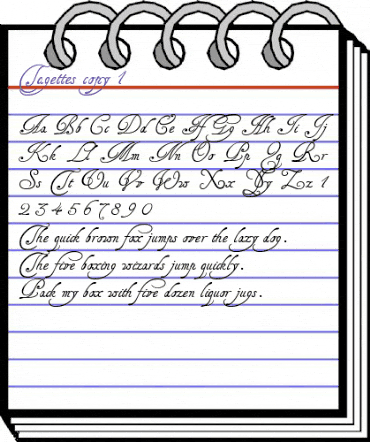 Tagettes copy 1
Aa Bb Cc Dd Ee Ff Gg Hh Ii Jj
Kk Ll Mm Nn Oo Pp Qq Rr
Ss Tt Uu Vv Ww Xx Yy Zz 1
2 3 4 5 6 7 8 9 0
The quick brown fox jumps over the lazy dog.
The five boxing wizards jump quickly.
Pack my box with five dozen liquor jugs.